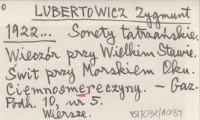 LUBERTOWICZ Zygmunt
1922... Sonety tatrzańskie.
Wieczór przy Wielkim Stawie.
Świt przy Morskiem Oku.
Ciemnosmereczyny. - Gaz.
Podh. 10, nr 5.
Wiersze.